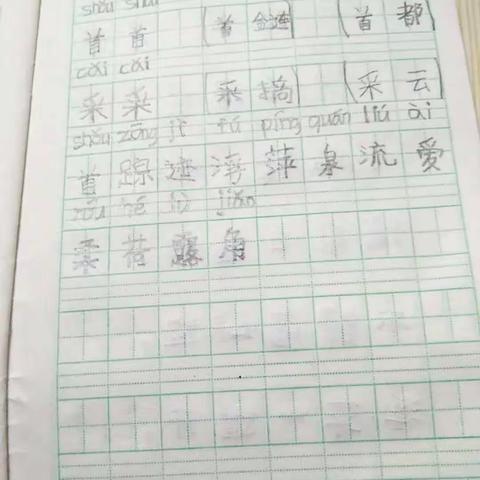 shǒu shǒu
首 首 (首 链) (首 都)
cǎi cǎi
采 采 (采 摘) (采 云)
shǒu zōng jì fú píng quán liú ài
首 踪 迹 浮 萍 泉 流 爱
róu hé lù jiǎo
柔 荷 露 角